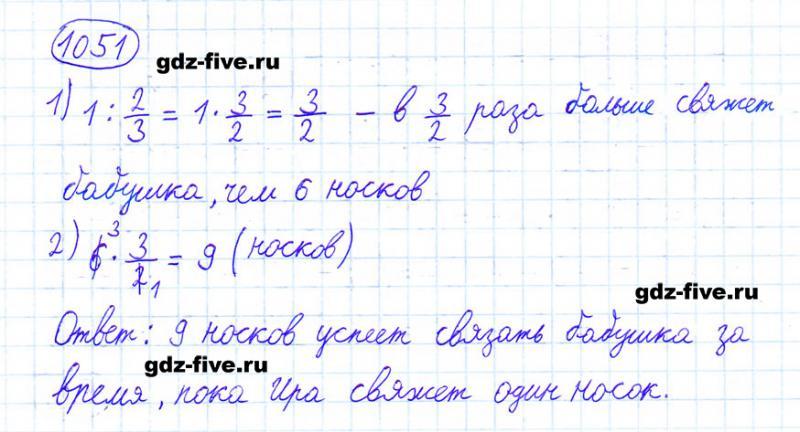 1051
gdz-five.ru
1) 1 : 2/3 = 1 · 3/2 = 3/2 – в 3/2 раза больше свяжет
бабушка, чем 6 носков
2) 6³ · 3/2₁ = 9 (носков)
gdz-five.ru
Ответ: 9 носков успеет связать бабушка за
gdz-five.ru
время, пока Ира свяжет один носок.